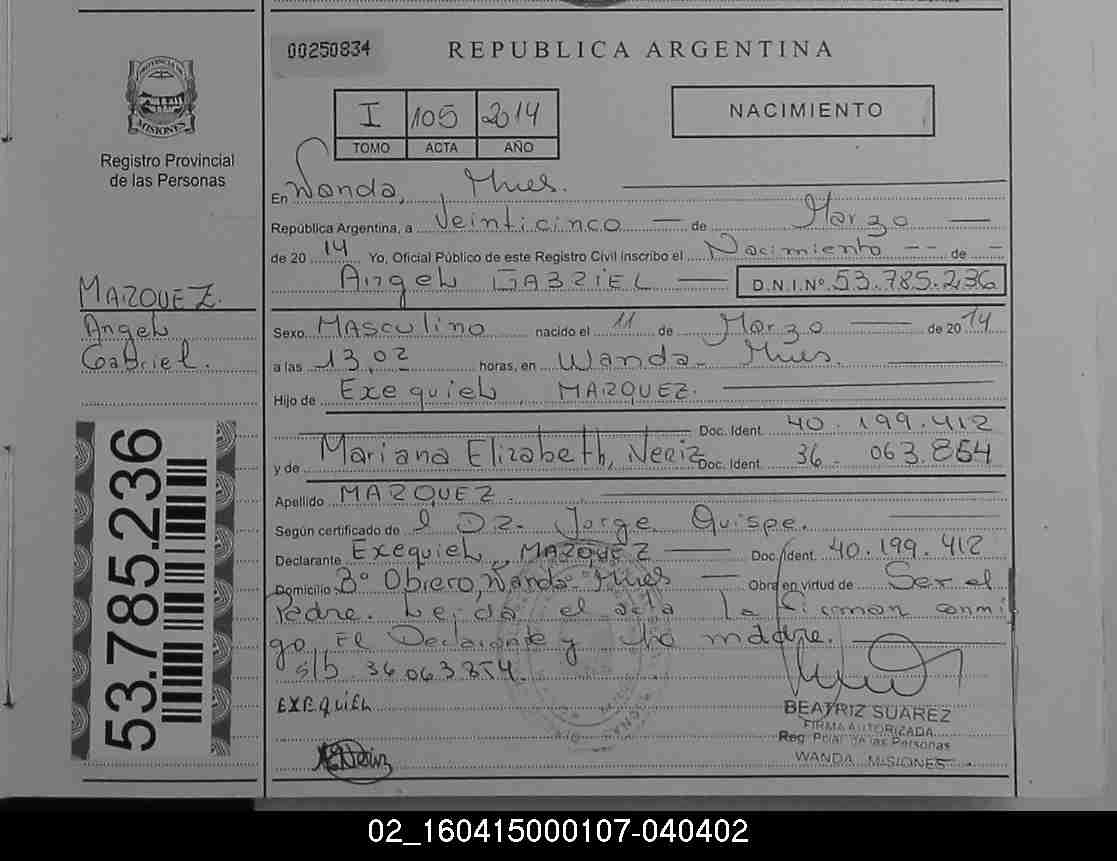 00250834
REPUBLICA ARGENTINA
PROVINCIA DE MISIONES
Registro Provincial
de las Personas
I 105 2014
TOMO ACTA AÑO
NACIMIENTO
En Wanda, Mnes.
República Argentina, a Veinticinco de Marzo
de 20 14 Yo, Oficial Público de este Registro Civil Inscribo el Nacimiento de
Angel GABRIEL D.N.I.Nº. 53.785.236
MARQUEZ.
Angel
Gabriel.
Sexo MASculino nacido el 11 de Marzo de 2014
a las 13,02 horas, en Wanda - Mnes.
Hijo de Exequiel MARQUEZ.
Doc. Ident. 40.199.412
y de Mariana Elizabeth, Neriz Doc. Ident. 36.063.854
Apellido MARQUEZ.
Según certificado de l DR. Jorge Quispe.
Declarante Exequiel, MARQUEZ Doc. Ident. 40.199.412
Domicilio Bº Obrero, Wanda Mnes Obra en virtud de Ser el
Padre. Leida el acta la firman conmi
go El Declarante y la madre.
s/b 36063854.
EXEQUIEL
BEATRIZ SUAREZ
FIRMA AUTORIZADA
Reg. Pcial de las Personas
WANDA MISIONES
53.785.236
02_160415000107-040402